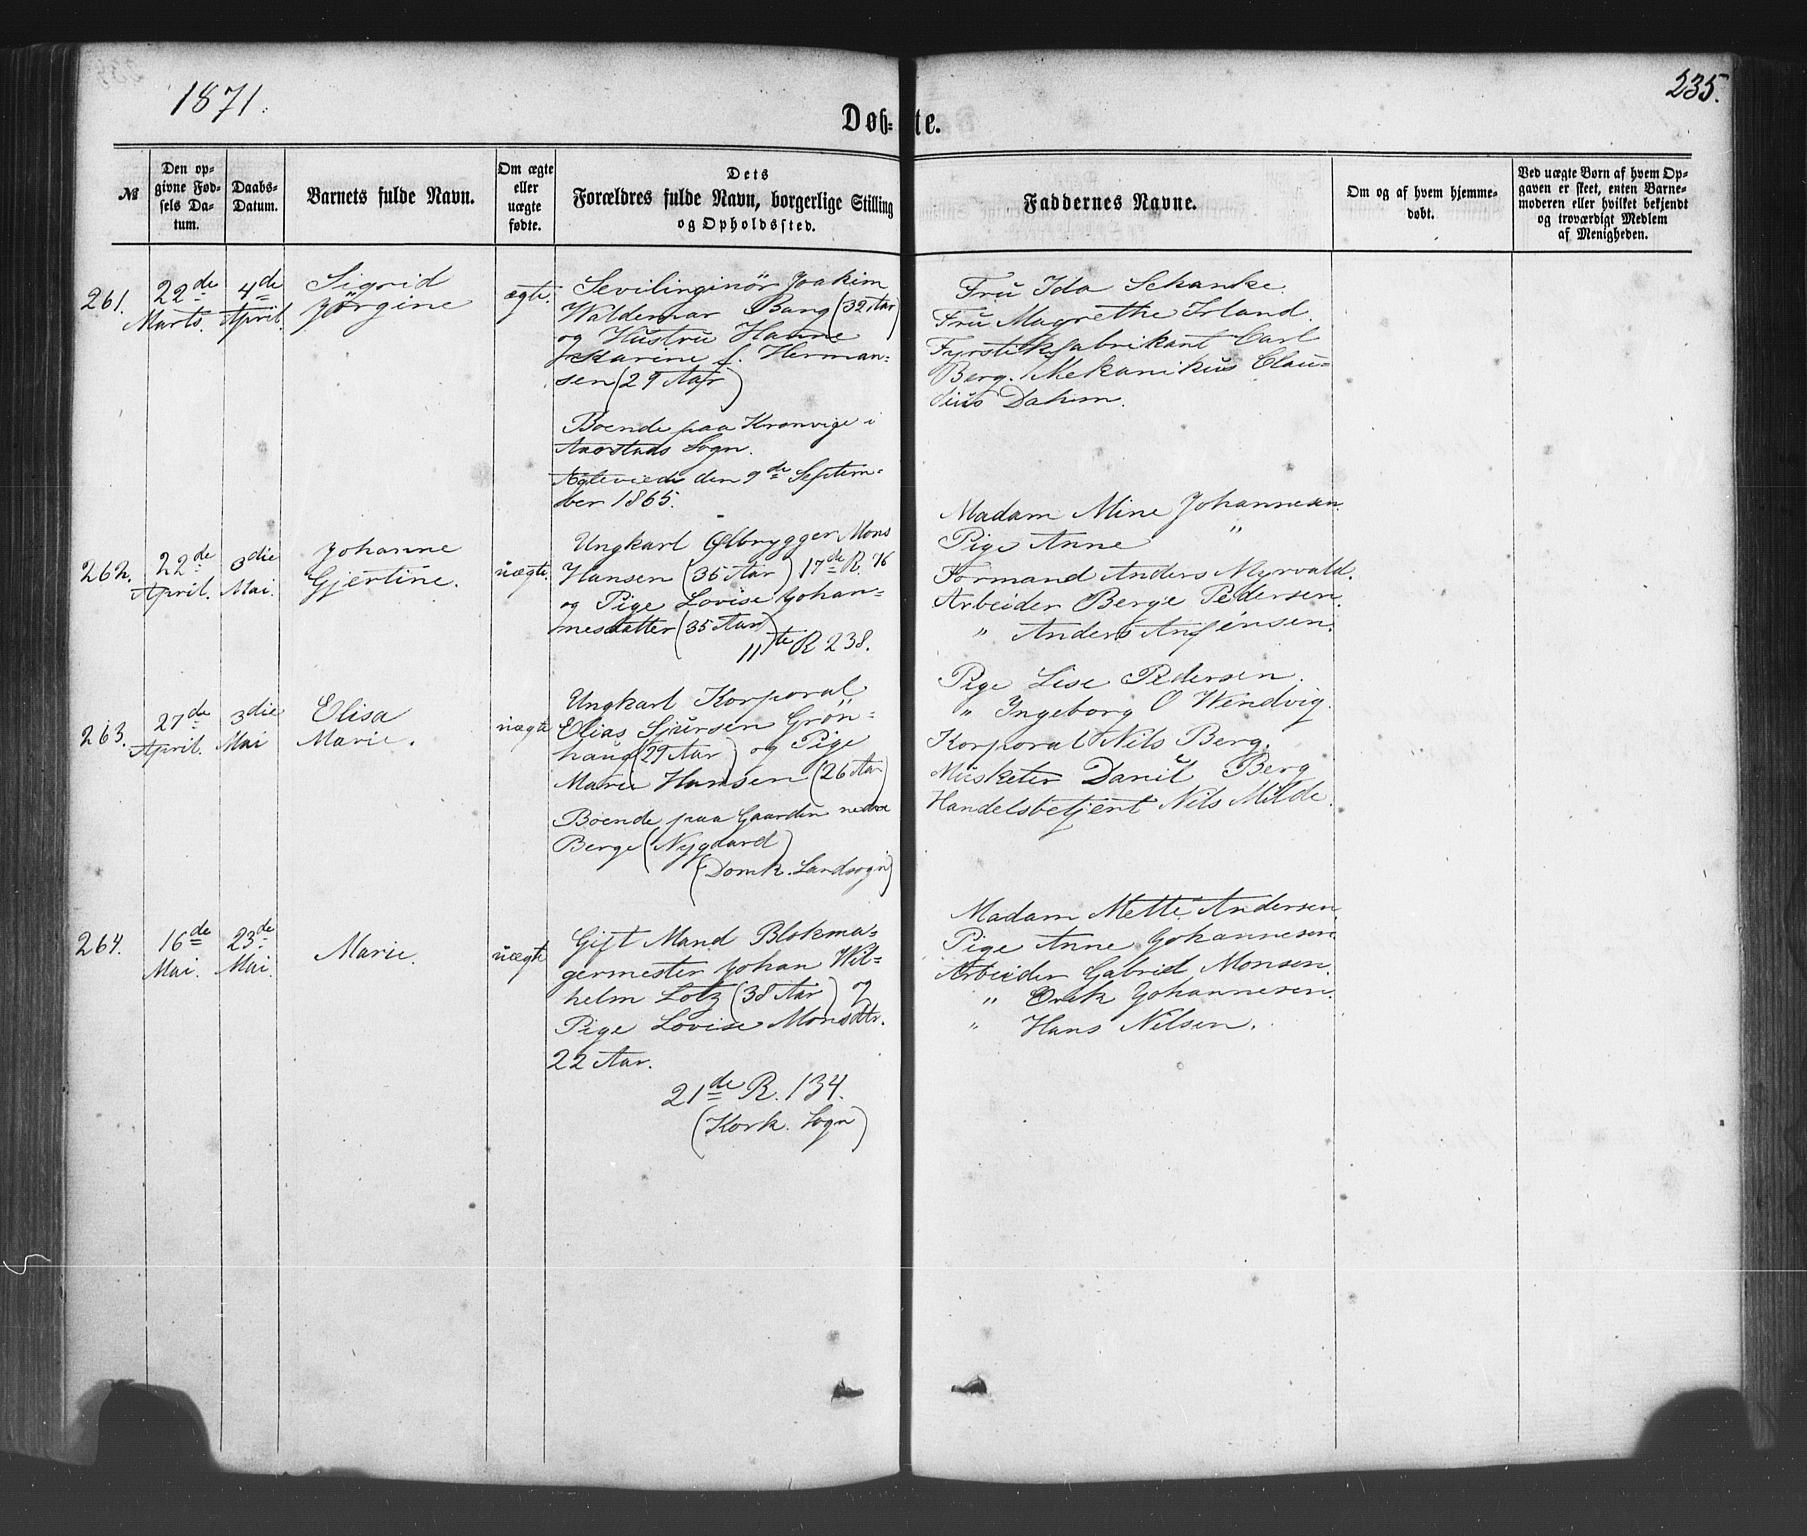 1871.
235.
Døb-te.
№
Den op-
givne Fød-
sels Da-
tum.
Daabs-
Datum.
Barnets fulde Navn.
Om ægte
eller
uægte
fødte.
Dets
Forældres fulde Navn, borgerlige Stilling
og Opholdssted.
Faddernes Navne.
Om og af hvem hjemme-
døbt.
Ved uægte Børn af hvem Op-
gaven er skeet, enten Barne-
moderen eller hvilket bekjendt
og troværdigt Medlem
af Menigheden.
261.
22de
Marts.
4de
April.
Sigrid
Jørgine
ægte.
Sevilinginør Joakim
Waldemar Bang (32 Aar)
og Hustru Hanne
Karine f. Herman-
sen (29 Aar)
Boende paa Kronvige i
Aarstads Sogn.
Ægteviede den 9de Septem-
ber 1865.
Fru Ida Schanke.
Fru Magrethe Irland.
Fyrstikfabrikant Carl
Berg. Mekanikus Clau-
dius Dahm.
262.
22de
April.
3die
Mai.
Johanne
Gjertine.
uægte.
Ungkarl Ølbrygger Mons
Hansen (35 Aar) 17de R. 76
og Pige Lovise Johan-
nesdatter (35 Aar)
11te R 238.
Madam Mine Johannesen
Pige Anne "
Formand Anders Myrvald.
Arbeider Berge Pedersen.
" Anders Anfensen.
263.
27de
April.
3die
Mai
Elisa
Marie.
uægte
Ungkarl Korporal
Elias Sjursen Grön-
haug (29 Aar) og Pige
Maree Hansen (26 Aar)
Boende paa Gaarden nedre
Berge (Nygaard)
(Domk. Landsogn)
Pige Lise Pedersen.
" Ingeborg O Wendvig.
Korporal Nils Berg.
Musketer Danil Berg
Handelsbetjent Nils Milde.
264.
16de
Mai.
23de
Mai.
Marie.
uægte
Gift Mand Blokma-
germester Johan Wil-
helm Lotz (38 Aar) og
Pige Lovise Monsdtr.
22 Aar.
21de R. 134.
(Kork. Sogn)
Madam Mette Andersen.
Pige Anne Johannesen.
Arbeider Gabriel Monsen.
" Johannesen.
" Hans Nilsen.